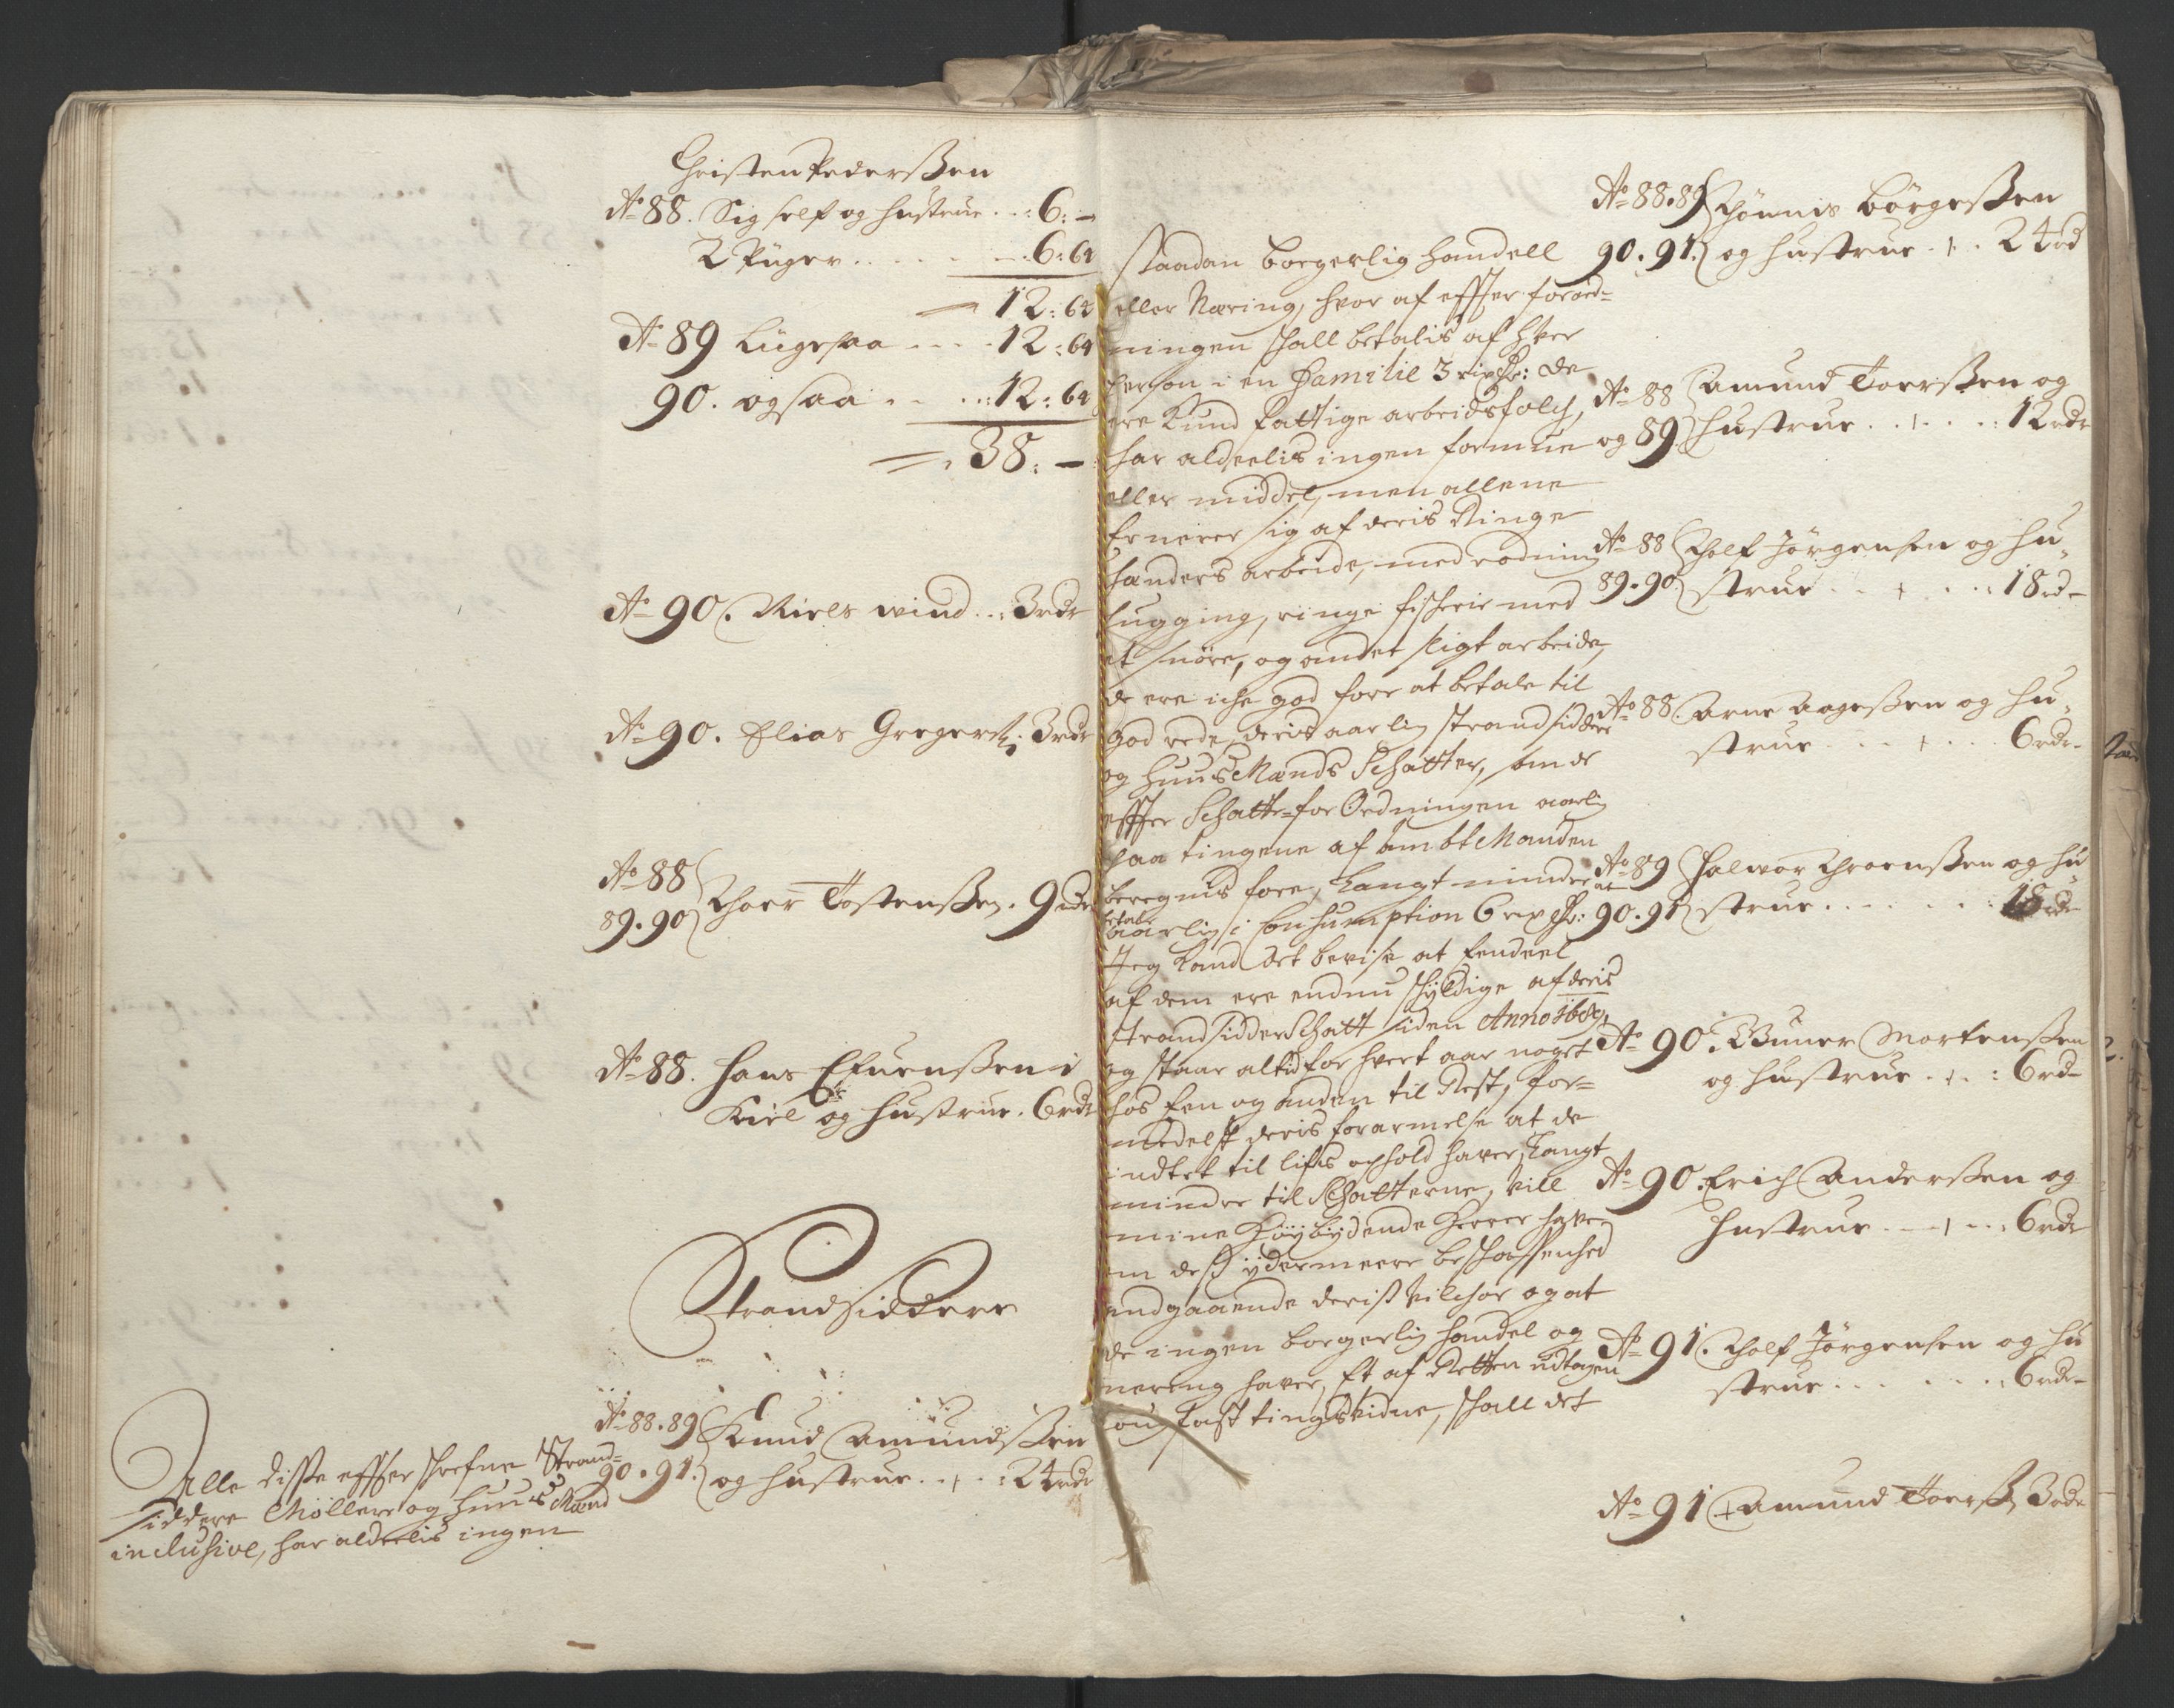 Christen Pederßen
Ao 88. Sig self og hustrue . . : 6 : —
2 Piiger . . . . . . : 6 : 64
12 : 64
Ao 89 Liigesaa . . . . 12 : 64
90. ogsaa . . . . : 12 : 64
38 : —
Ao 90. Niels wind . . : 3 rdr
Ao 90. Elias Gregerß: 3 rdr
Ao 88
89. 90 Thoer Tostenßen . 9 rdr
Ao 88. Hans Efuenßen i
Kiil og hustrue . 6 rdr
Strandsiddere
Ao 88. 89 Knud Amundßen
90. 91. og hustrue . . . : 24 rdr
Alle disse effter schrefne Strand-
siddere Møllere og Huus Mænd
inclusive, har aldeelis ingen
Saadan borgerlig handell
eller Næring, hvor af effter forord-
ningen schall betalis af hver
Person i en Familie 3 rixdr: De
ere Kund fattige arbeidsfolch,
har aldeelis ingen formue
eller middel, men allene
Ernerer sig af deris Ringe
hænders arbeide, med rødning
hugging, ringe fischerie med
et snøre, og andet sligt arbeide,
de ere iche god fore at betale til
god rede, deris aarlig strandsidder
og Huus Mands Schatter, som de
effter Schatte-for Ordningen aarlig
paa tingene af Ambt Manden
beregnis fore, Langt mindre at
betale
aarlig i Consumption 6 rixdr:
Jeg Kand det bevise at Eendeel
af dem ere endnu schyldige af deris
strandsidder Schatt siden Anno 1680,
og staar altid for hvert aar noget
hos Een og Anden til Rest, for-
medelst deris forarmelse at de
indtet til lifs ophold haver, Langt
mindre til Schatterne, vill
mine Høybydende Herrer have
om dess ydermeere beschaffenhed
angaaende deriß vilchor og at
de ingen borgerlig handel og
nereng haver, Et af Retten udtagen
Loug fast tingsvidne, schall det
Ao 88. 89 Thønnis Børgeßen
90. 91. og hustrue . . . 24 rd
Ao 88 Amund Toerßen og
og 89 hustrue . . . . : 12 rdr
Ao 88 Tholf Jørgensen og hu
89. 90. strue . . . . : 18 rd
Ao 88. Arne Aageßen og hu
strue . . . . . 6 rdr
Ao 89 Halvor Throenßen og hu
90. 91 strue . . . . . : 18 rdr
Ao 90. Guner Mortenßen
og hustrue . . . : 6 rd
Ao 90. Erich Anderßen og
hustrue . . . . : 6 rdr
Ao 91. Tholf Jørgensen og hu
strue . . . . . . 6 rdr
Ao 91 Amund Toerß, 3 rdr